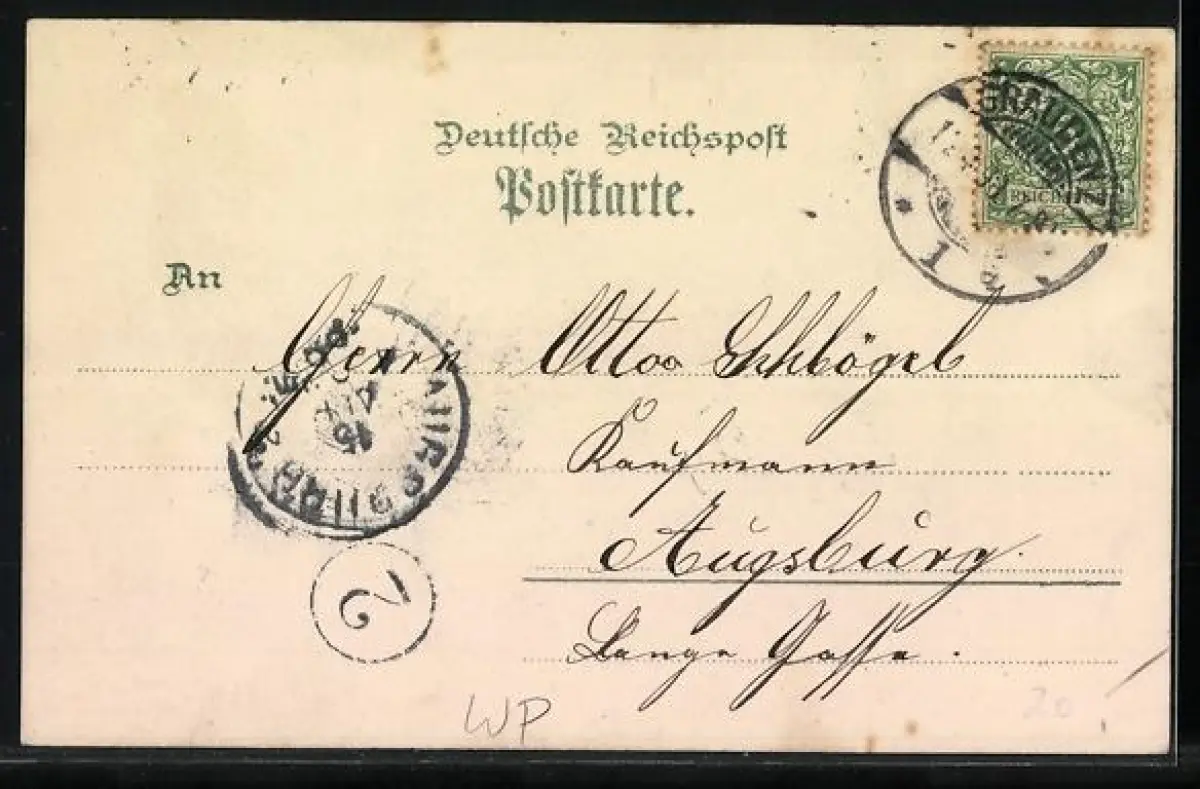 Deutsche Reichspost
Postkarte.
GRAUDENZ
1
REICHSPOST
An
Herrn Otto Schlögel
Kaufmann
Augsburg.
Lange Gasse.
AUGSBURG
15
2
WP
20